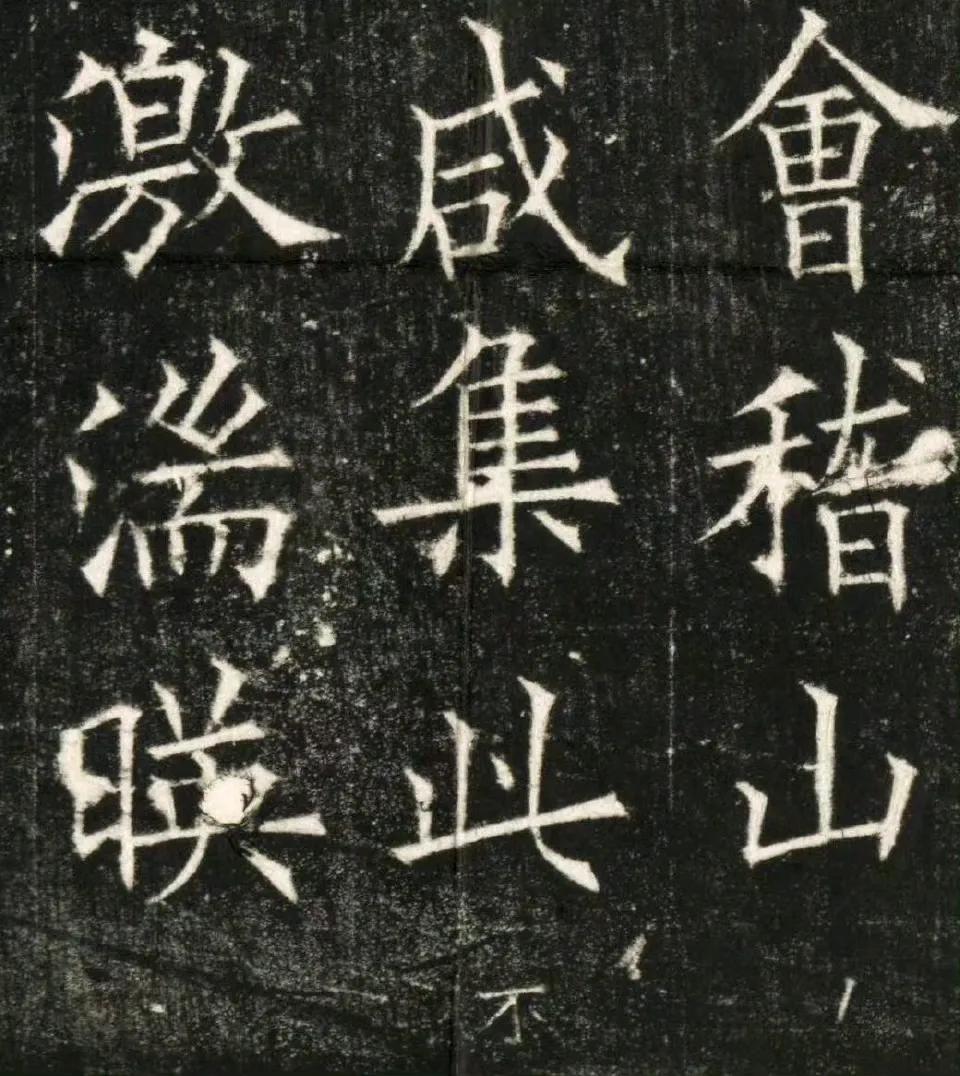 會稽山
咸集此
不
激湍暎